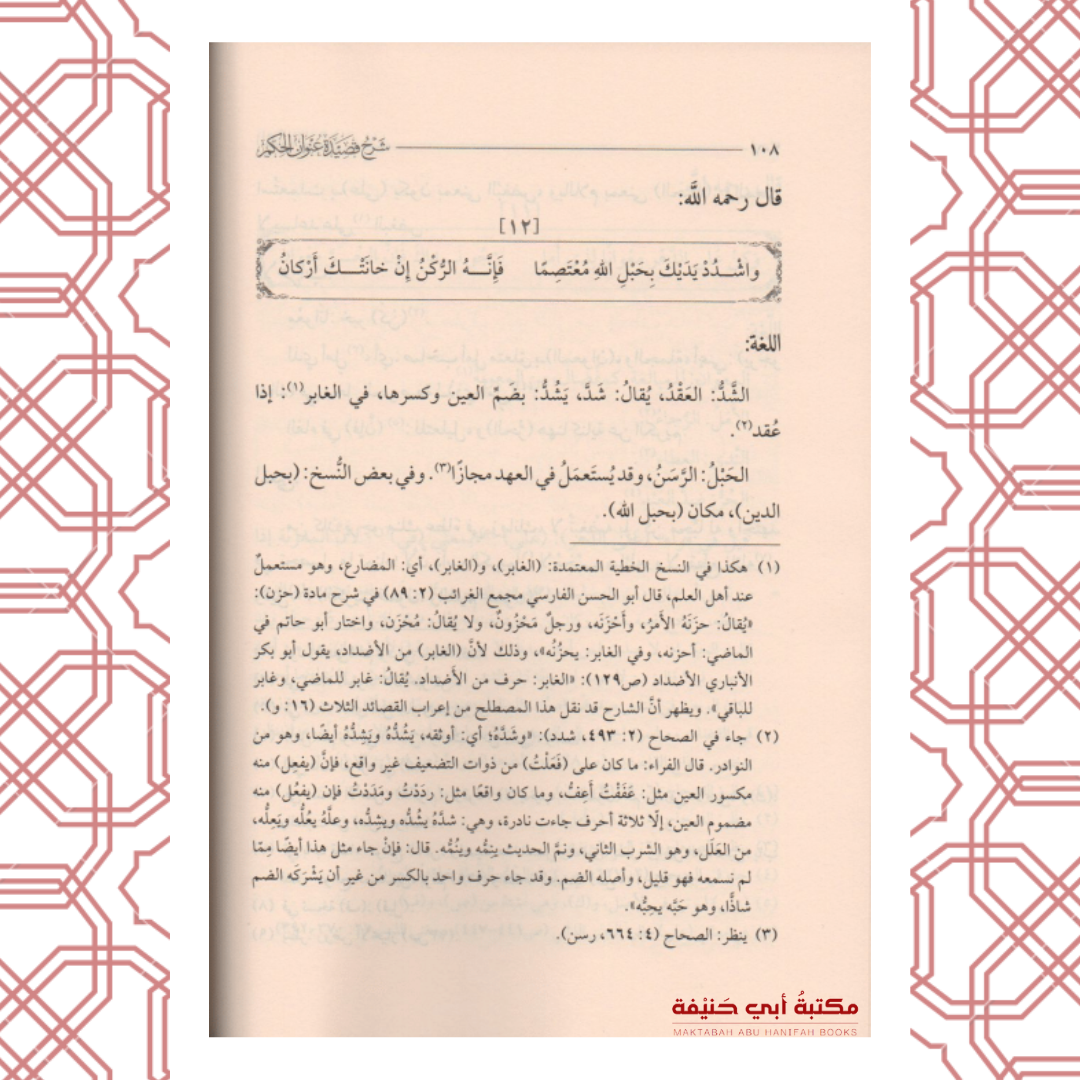 ١٠٨ شَرْحُ قَصِيْدَة عُنْوَان الْحِكَم
قال رحمه اللَّه:
[١٢]
واشْـدُدْ يَدَيْكَ بِحَبْلِ اللهِ مُعْتَصِمًا فَإِنَّـهُ الرُّكْنُ إِنْ خانَتْـكَ أَرْكانُ
اللغة:
الشَّدُّ: العَقْدُ، يُقالُ: شَدَّ، يَشُدُّ: بضَمِّ العين وكسرها، في الغابر (١): إذا
عُقد(٢).
الحَبْلُ: الرَّسَنُ، وقد يُستَعمَلُ في العهد مجازًا(٣). وفي بعض النُّسخ: (بحبل
الدين)، مكان (بحبل الله).
(١) هكذا في النسخ الخطية المعتمدة: (الغابر)، و(الغابر)، أي: المضارع، وهو مستعملٌ
عند أهل العلم، قال أبو الحسن الفارسي مجمع الغرائب (٢: ٨٩) في شرح مادة (حزن):
«يُقالُ: حزَنَهُ الأمرُ، وأَحْزَنَه، ورجلٌ مَحْزُونٌ، ولا يُقالُ: مُحْزَن، واختار أبو حاتم في
الماضي: أحزنه، وفي الغابر: يحزُنُه»، وذلك لأنَّ (الغابر) من الأضداد، يقول أبو بكر
الأنباري الأضداد (ص١٢٩): «الغابر: حرف من الأَضداد. يُقالُ: غابر للماضي، وغابر
للباقي». ويظهر أنَّ الشارح قد نقل هذا المصطلح من إعراب القصائد الثلاث (١٦: و).
(٢) جاء في الصحاح (٢: ٤٩٣، شدد): «وشَدَّهُ؛ أي: أوثقه، يَشُدُّهُ ويَشِدُّهُ أيضًا، وهو من
النوادر. قال الفراء: ما كان على (فَعَلْتُ) من ذوات التضعيف غير واقع، فإنَّ (يفعِل) منه
مكسور العين مثل: عَفَفْتُ أَعِفُّ، وما كان واقعًا مثل: ردَدْتُ ومَدَدْتُ فإن (يفعُل) منه
مضموم العين، إلّا ثلاثة أحرف جاءت نادرة، وهي: شدَّهُ يشُدُّه ويشِدُّه، وعلَّهُ يعُلُّه ويَعِلُّه،
من العَلَل، وهو الشرب الثاني، ونمَّ الحديث ينِمُّه وينُمُّه. قال: فإنْ جاء مثل هذا أيضًا مِمّا
لم نسمعه فهو قليل، وأصله الضم. وقد جاء حرف واحد بالكسر من غير أن يَشْرَكَه الضم
شاذًّا، وهو حَبَّه يحِبُّه».
(٣) ينظر: الصحاح (٤: ٦٦٤، رسن).
مكتبةُ أبي حَنيْفة
MAKTABAH ABU HANIFAH BOOKS